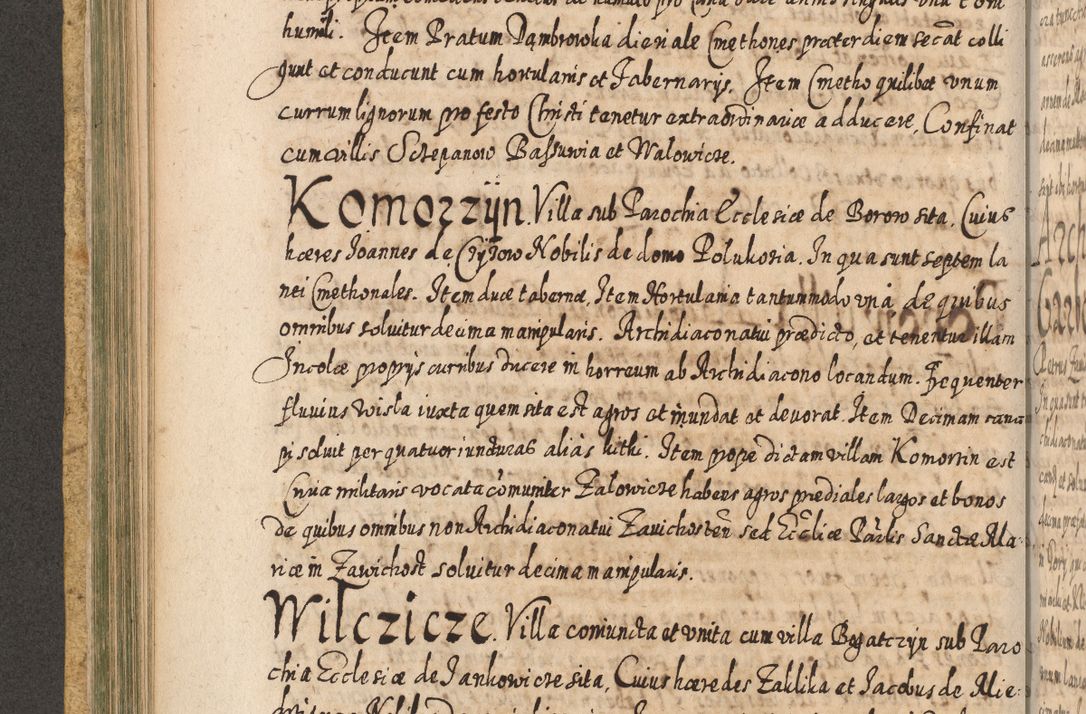 humili. Item Pratum Dambrowka dieriale Cmethones præter diem secāt colli
gunt et conducunt cum hortulanis et Tabernarijs. Item Cmetho quilibet vnum
currum lignorum pro festo Christi tenetur extraordinariæ adducere, Confinat
cum villis Sczepanow Bassuwia et Walowicze.
Komorzijn. Villa sub Parochia Ecclesiæ de Borow sita, Cuius
hæres Ioannes de Czyzow Nobilis de domo Polukozia. In qua sunt septem la
nei Cmethonales. Item duæ tabernæ, Item Hortulania tantummodo vnā de quibus
omnibus soluitur decima manipularis. Archidiaconatui prædicto, et tenentur illam
Incolæ proprijs curribus ducere in horreum ab Archidiacono locandum. Frequenter
fluuius Wisla iuxta quem sita est agros et inundat et deuorat. Item Decimam cana
pi soluit per quatuor iuncturas aliás kithi. Item prope dictam villam Komorrin est
Curia militaris vocata cōmuniter Zalowicze habens agros prædiales largos et bonos
de quibus omnibus non Archidiaconatui Zauichosten̄ sed Eccliæ Parlis Sanctæ Ma-
riæ in Zawichost soluitur decima manipularis.
Wilczicze. Villa coniuncta et vnita cum villa Bogatczyn sub Paro
chia Ecclesiæ de Iankowicze sita, Cuius hæredes Zaklika et Iacobus de Mie-